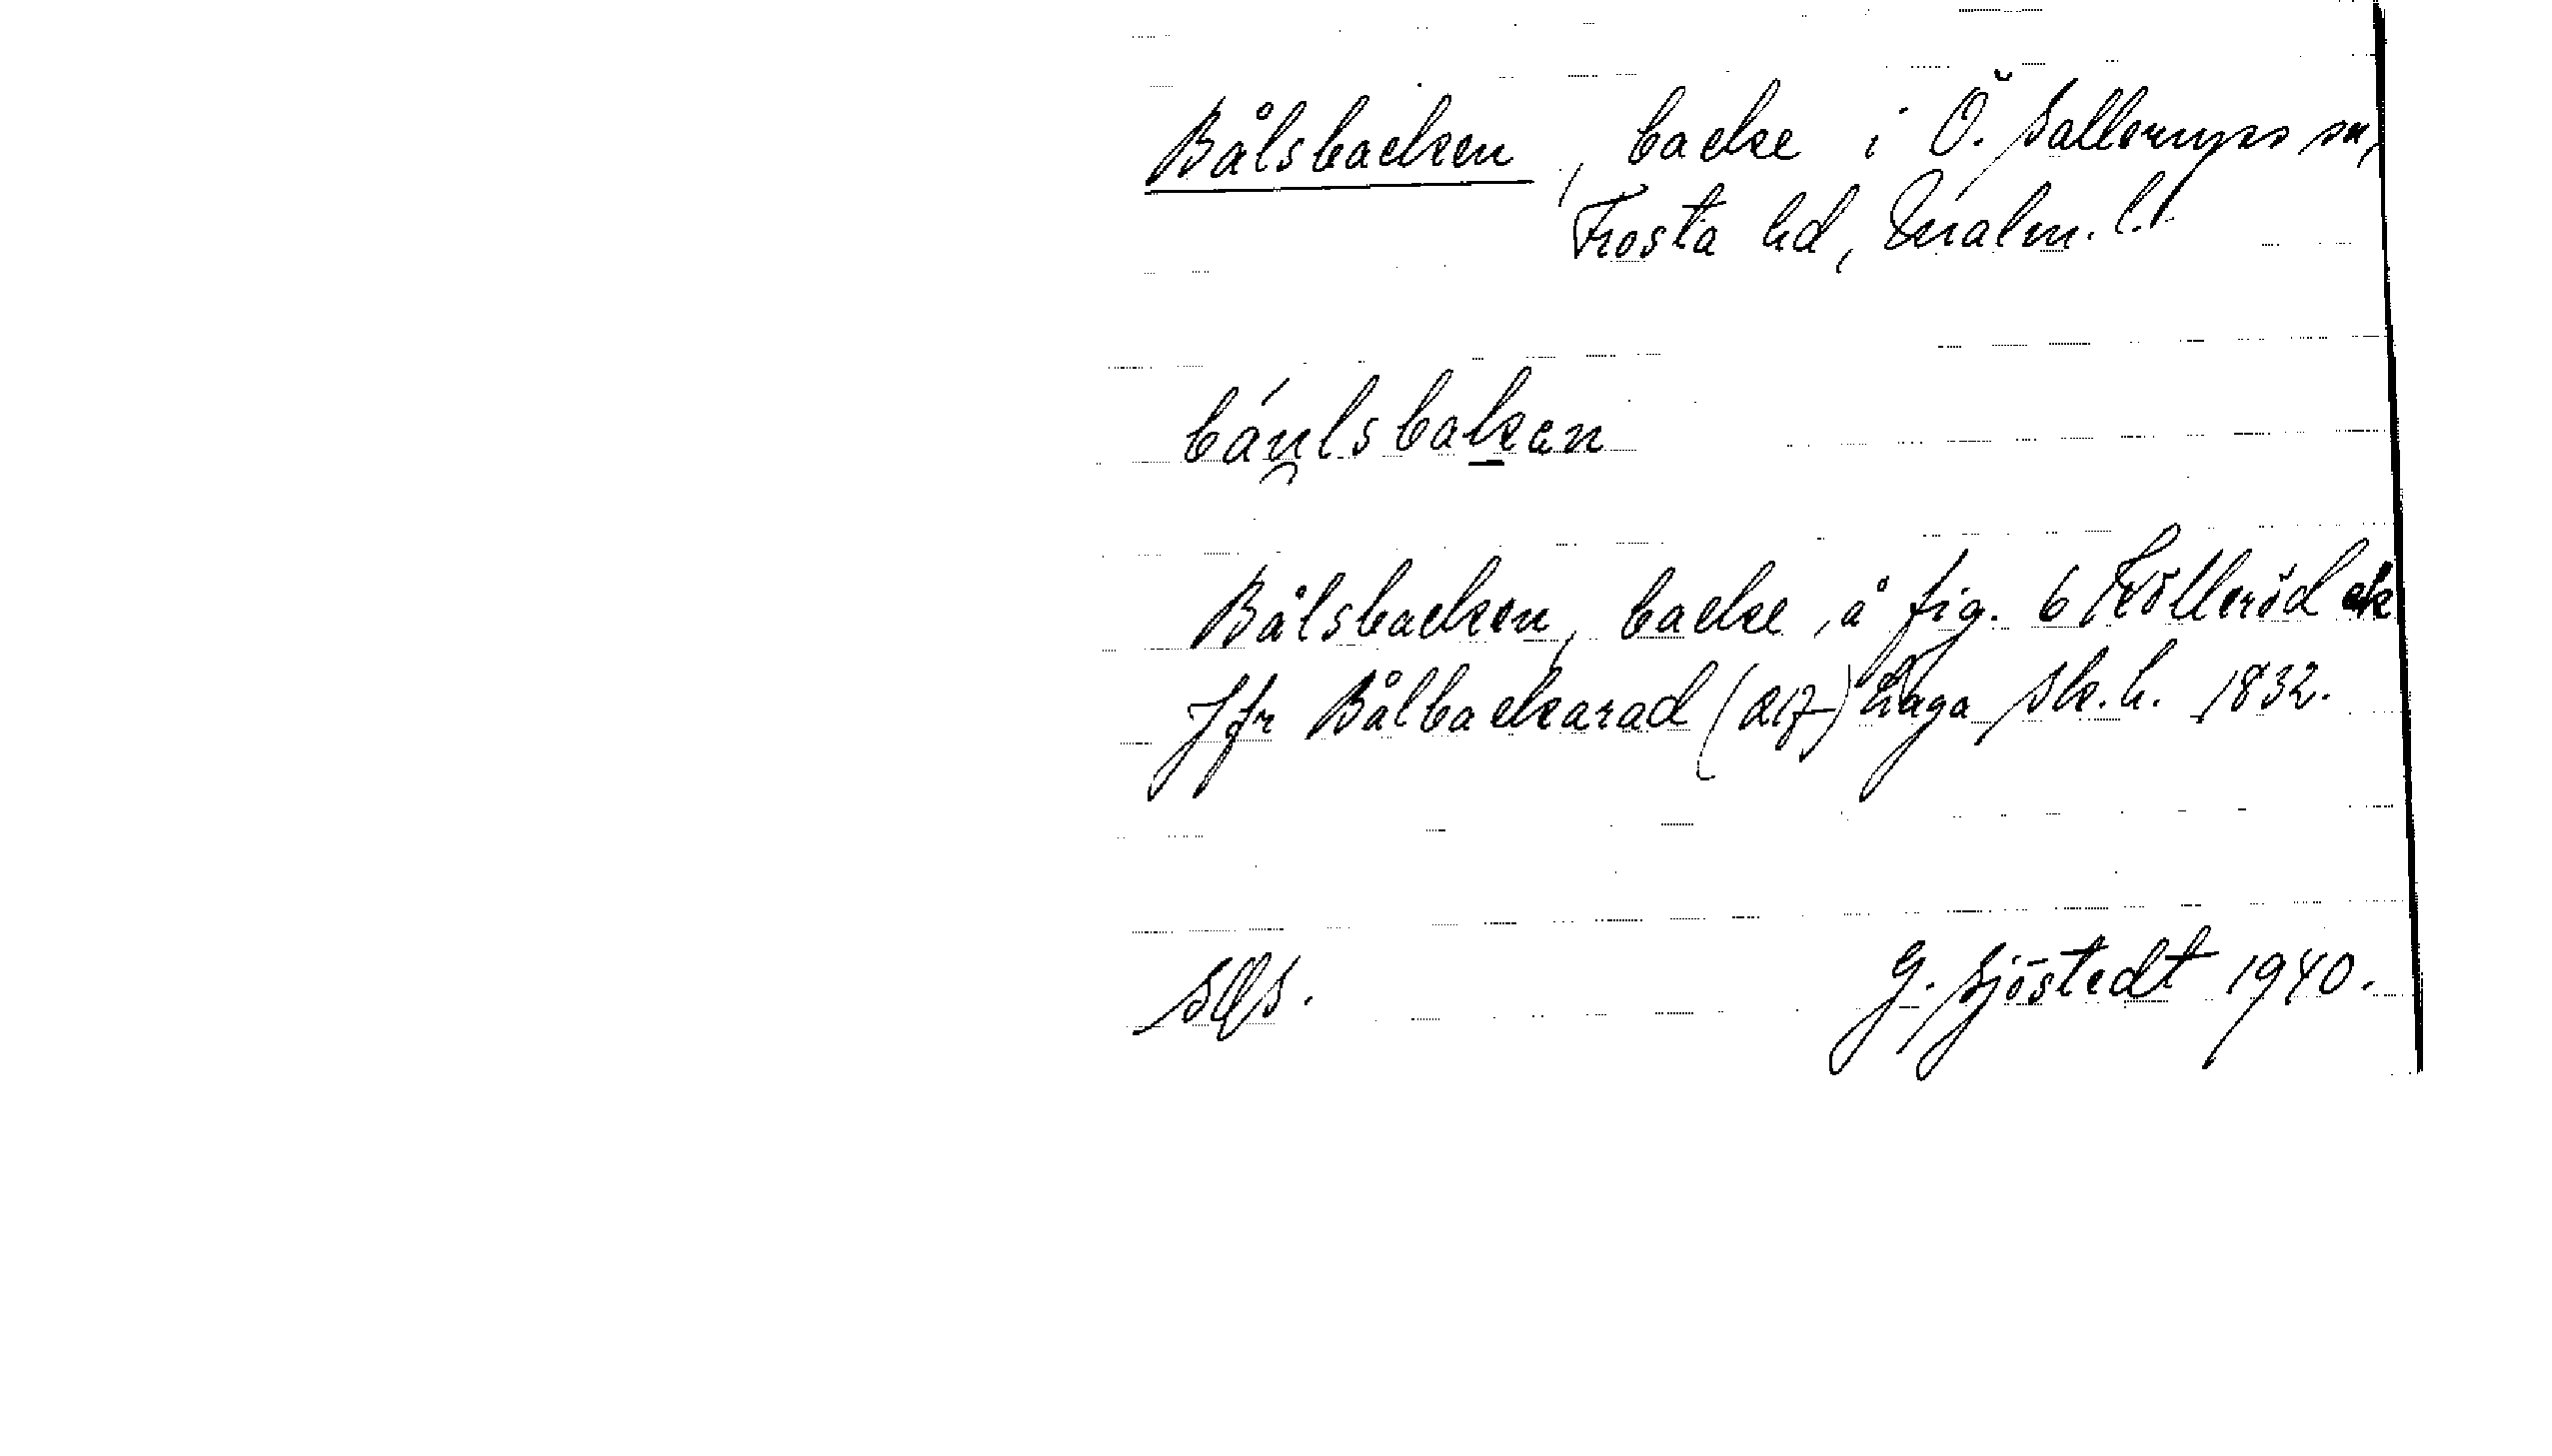 Bålsbacken, backe i Ö. Sallerups sn,
Frosta hd, Malm. l.
báu̯lsbakən
Bålsbacken, backe, å fig. 6 Kölleröd
Jfr Bålbackarad (Alf) haga sk.h. 1832.
SOS. G. Sjöstedt 1940.